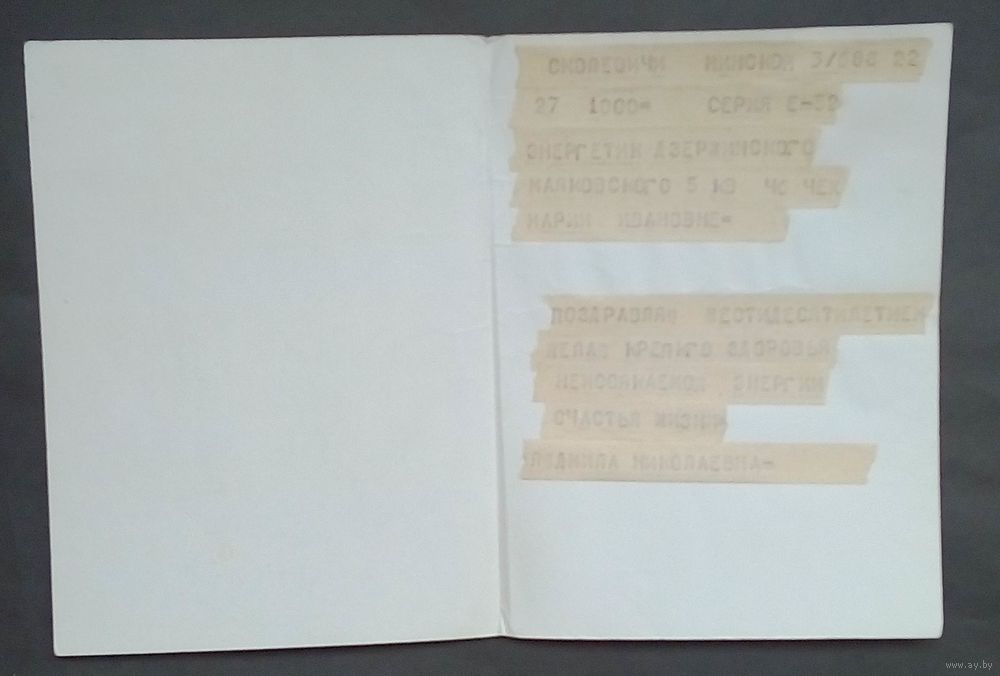 СМОЛЕВИЧИ МИНСКОЙ 3/506 22
27 1000= СЕРИЯ Е-32
ЭНЕРГЕТИК ДЗЕРЖИНСКОГО
МАЯКОВСКОГО 5 КВ ЧЕХ
МАРИИ ИВАНОВНЕ=
ПОЗДРАВЛЯЮ ШЕСТИДЕСЯТИЛЕТИЕМ
ЖЕЛАЮ КРЕПКГО ЗДОРОВЬЯ
НЕИССЯКАЕМОЙ ЭНЕРГИИ
СЧАСТЬЯ ЖИЗНИ
ЛЮДМИЛА НИКОЛАЕВНА=
www.ay.by